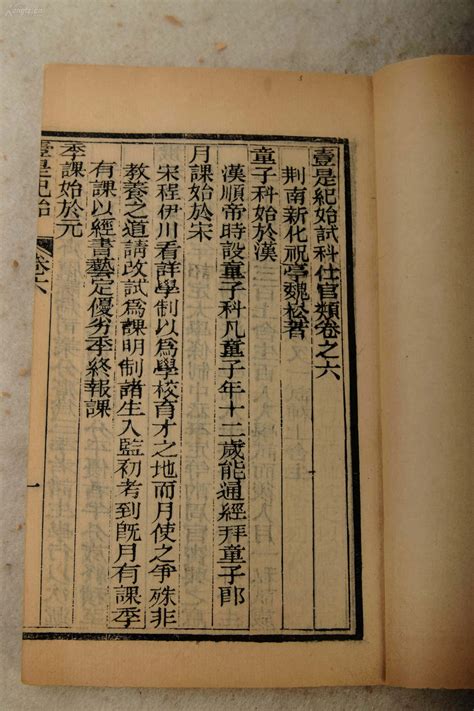 壹是紀始試科仕官類卷之六
荆南新化祝亭魏崧著
童子科始於漢
漢順帝時設童子科凡童子年十二歲能通經拜童子郎
月課始於宋
宋程伊川看詳學制以爲學校育才之地而月使之爭殊非
教養之道請改試爲課明制諸生入監初考到旣月有課季
有課以經書藝定優劣季終報課
季課始於元
壹是紀始
卷六
一